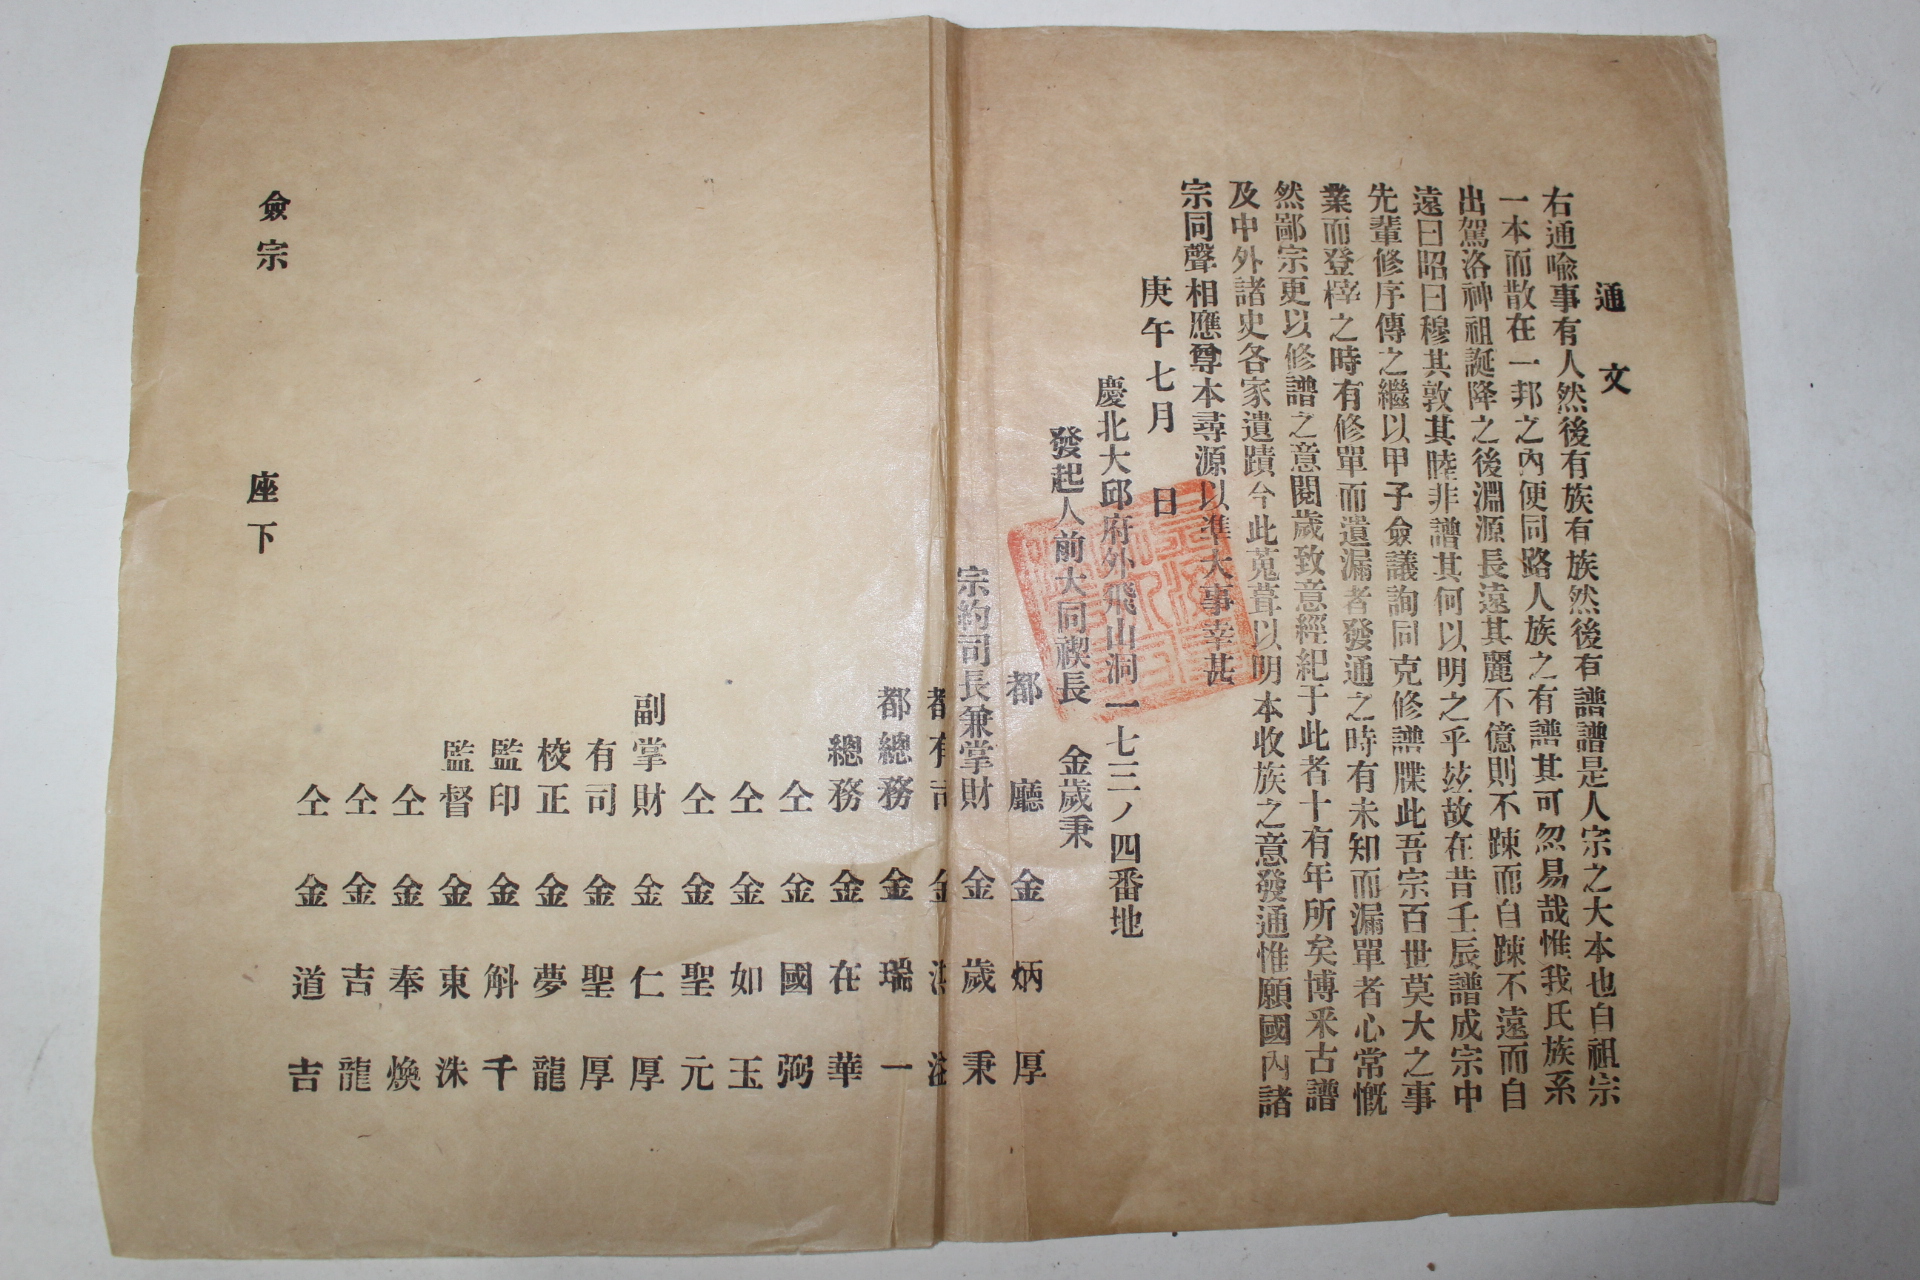 通文
右通喩事有人然後有族有族然後有譜譜是人宗之大本也自祖宗
一本而散在一邦之內便同路人族之有譜其可忽易哉惟我氏族系
出駕洛神祖誕降之後淵源長遠其麗不億則不踈而自踈不遠而自
遠曰昭曰穆其敦其睦非譜其何以明之乎玆故在昔壬辰譜成宗中
先輩修序傳之繼以甲子僉議詢同克修譜牒此吾宗百世莫大之事
業而登梓之時有修單而遺漏者發通之時有未知而漏單者心常慨
然鄙宗更以修譜之意閱歲致意經紀于此者十有年所矣博釆古譜
及中外諸史各家遺蹟今此蒐葺以明本收族之意發通惟願國內諸
宗同聲相應尊本尋源以準大事幸甚
庚午七月 日
慶北大邱府外飛山洞一七三ノ四番地
發起人前大同禊長 金歲秉
都廳 金炳厚
宗約司長兼掌財 金歲秉
都有司 金
都總務 金瑞一
總務 金在華
仝 金國弼
仝 金如玉
仝 金聖元
副掌財 金仁厚
有司 金聖厚
校正 金夢龍
監印 金斛千
監督 金東洙
仝 金奉煥
仝 金吉龍
仝 金道吉
僉宗 座下